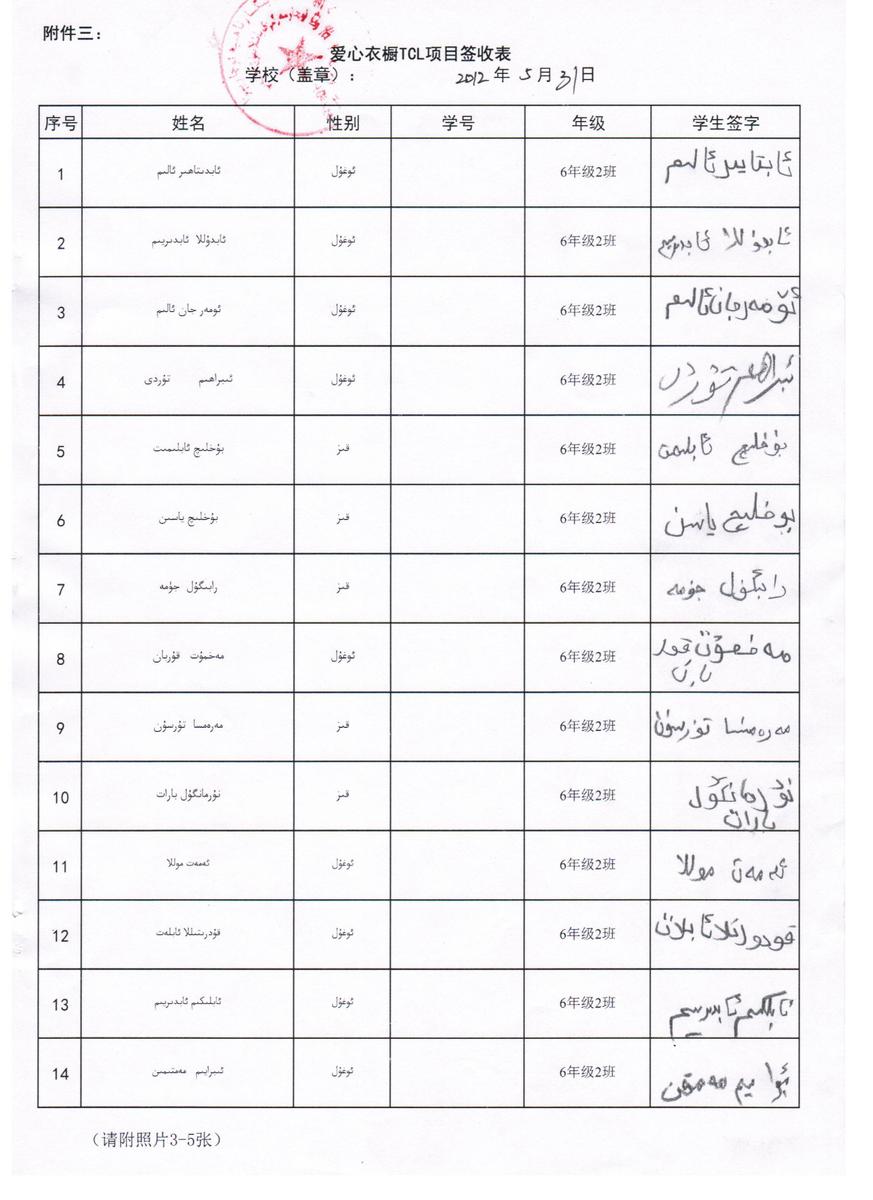 附件三：
爱心衣橱TCL项目签收表
学校（盖章）： 2012年5月31日
序号 姓名 性别 学号 年级 学生签字
1 ئابدىتاھىر ئالىم ئوغۇل 6年级2班 ئابتايىر ئالىم
2 ئابدۇللا ئابدىرىيىم ئوغۇل 6年级2班 ئابدۇللا ئابدىرىيىم
3 ئومەر جان ئالىم ئوغۇل 6年级2班 ئۆمەرجان ئالىم
4 ئىبراھىم تۇردى ئوغۇل 6年级2班 ئىبراھىم تۇردى
5 بۇخلىچ ئابلىمىت قىز 6年级2班 بۇخلىچ ئابلىمىت
6 بۇخلىچ ياسىن قىز 6年级2班 بوخلىچ ياسىن
7 رابىگۇل جۈمە قىز 6年级2班 رابىگۇل جۈمە
8 مەخمۇت قۇربان ئوغۇل 6年级2班
9 مەرەمسا تۇرسۇن قىز 6年级2班 مەرەمسا تۇرسۇن
10 نۇرمانگۇل بارات قىز 6年级2班 نۇرمانگۇل
بارات
11 ئەمەت موللا ئوغۇل 6年级2班 ئەمەت موللا
12 قۇدرىتىللا ئابلەت ئوغۇل 6年级2班
13 ئابلىكىم ئابدىرىيىم ئوغۇل 6年级2班
14 ئىبرايىم مەمتىمىن ئوغۇل 6年级2班
（请附照片3-5张）